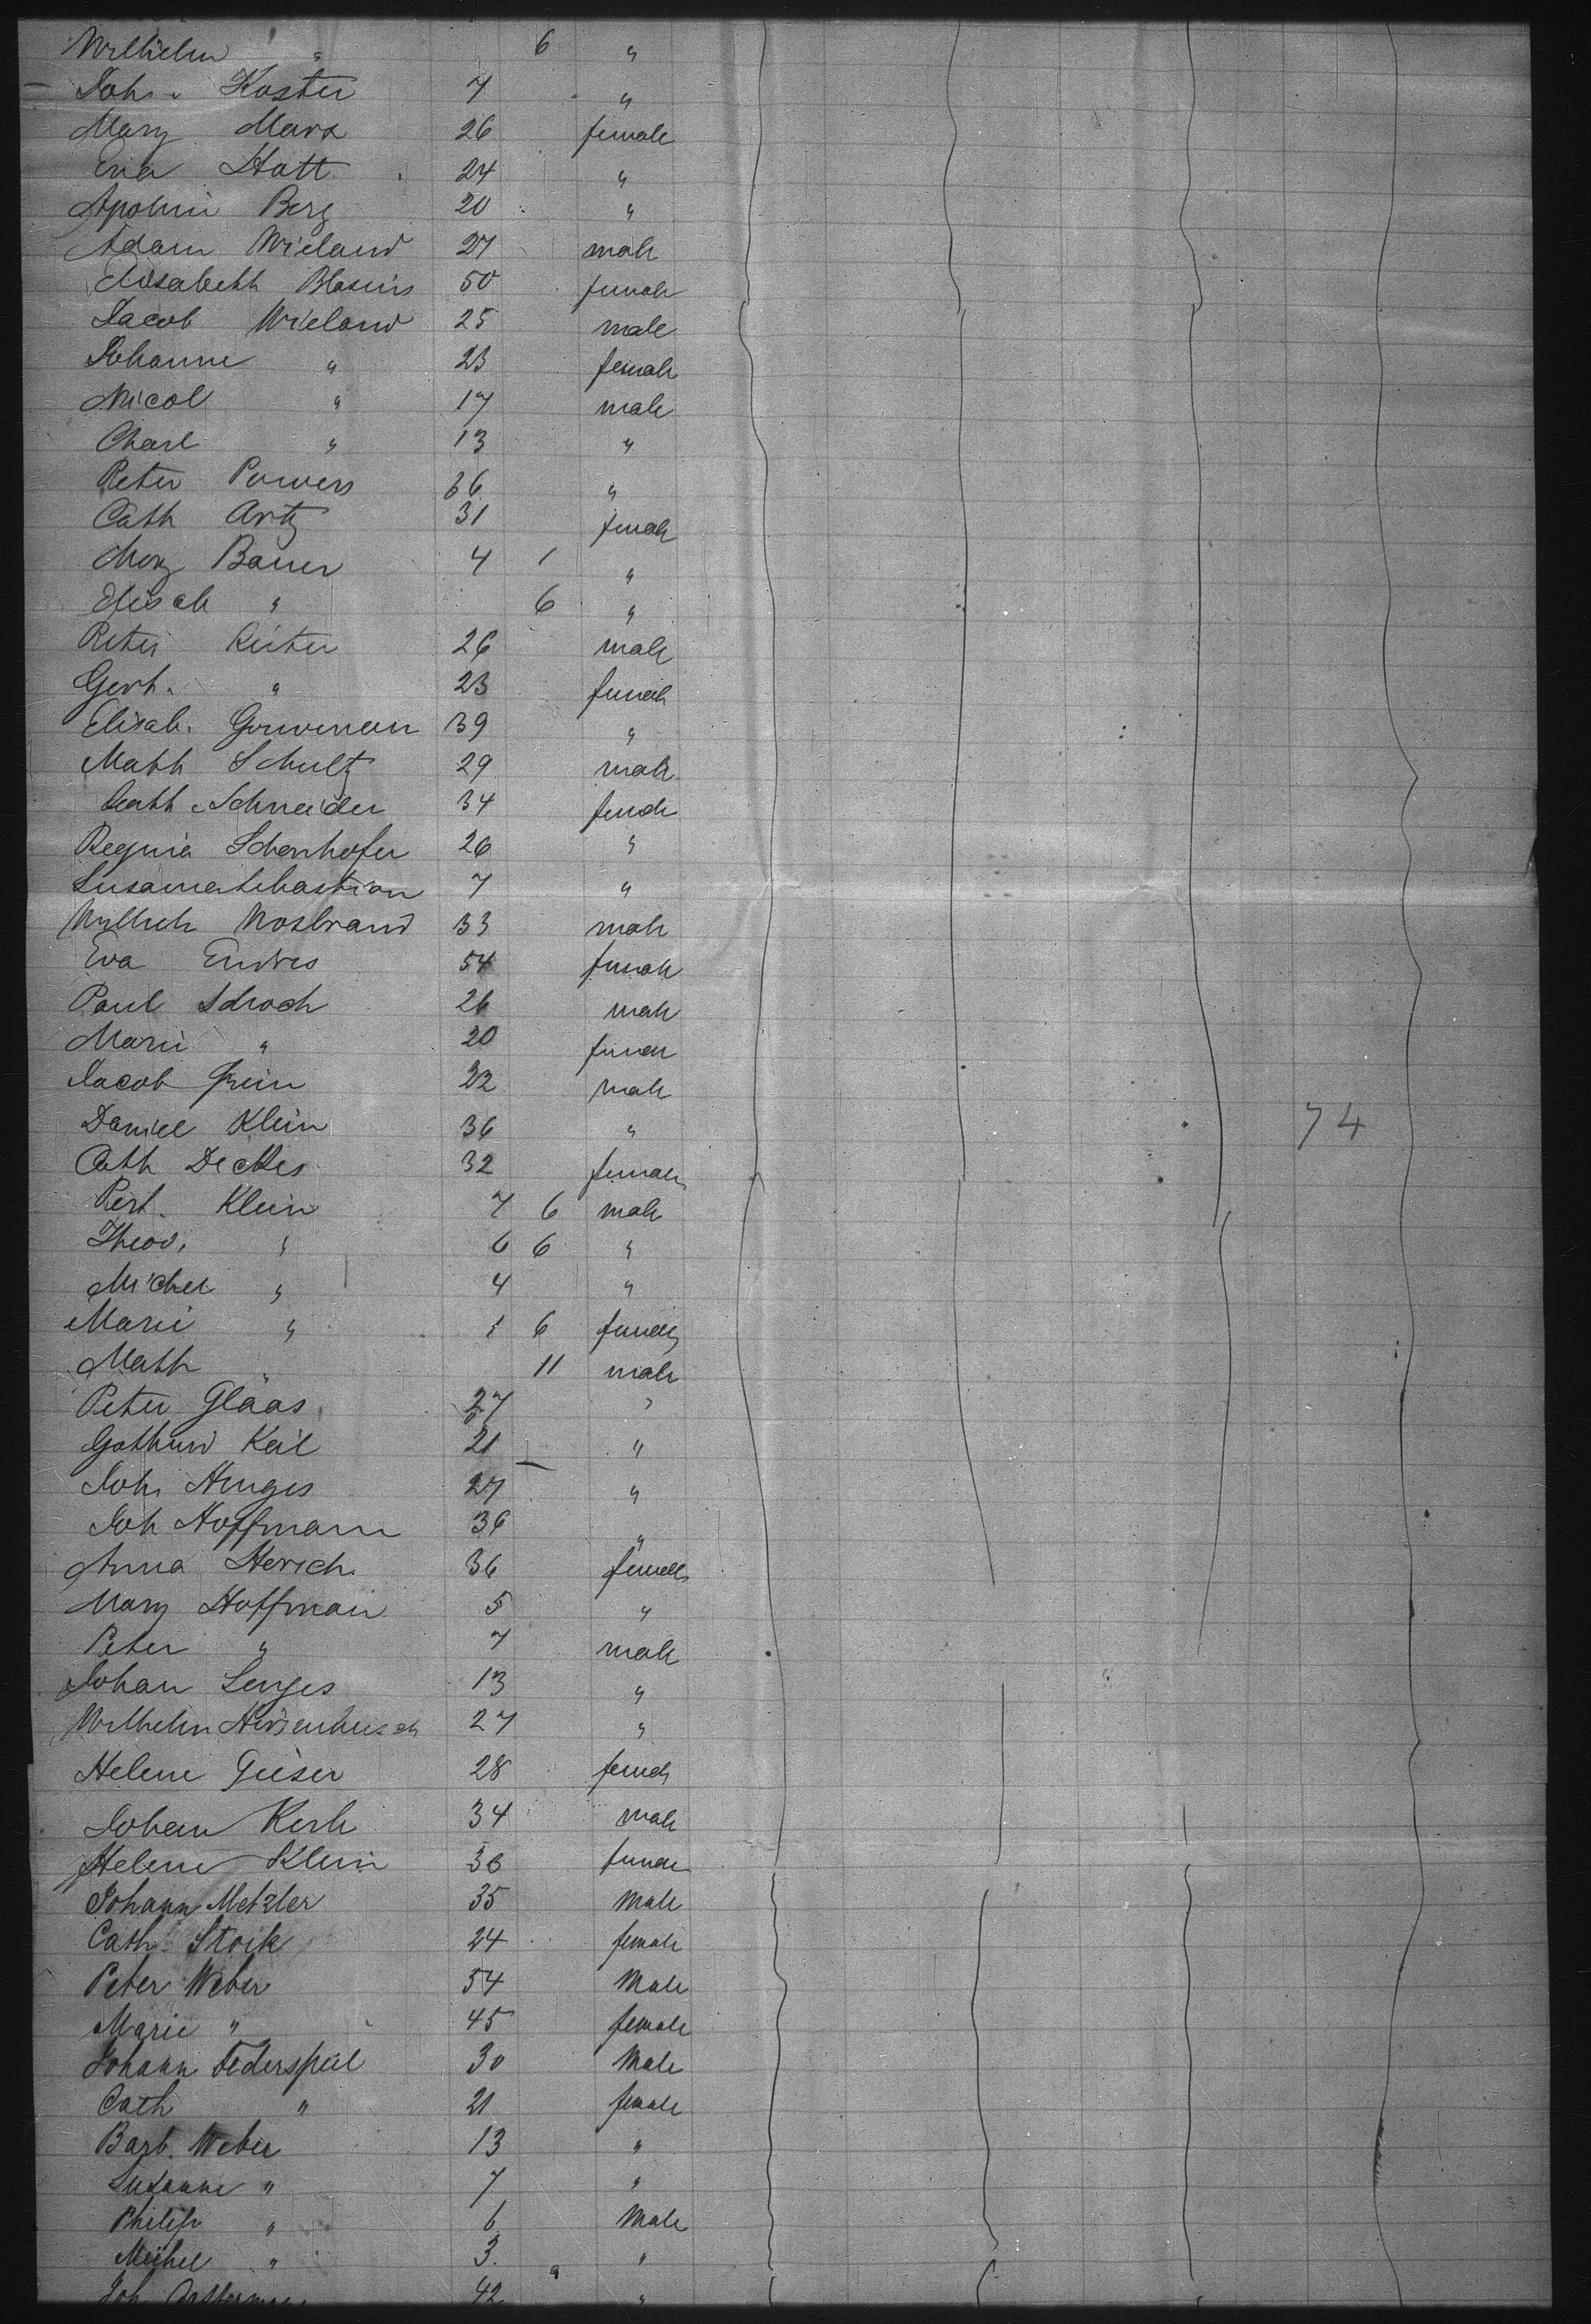 Wilhelm " 6 "
Joh. Koster 7 "
Mary Marx 26 female
Eva Hatt 24 "
Apolini Berg 20 "
Adam Wieland 27 male
Elisabeth Blasius 50 female
Jacob Wieland 25 male
Johanne " 23 female
Nicol " 17 male
Charl " 13 "
Peter Powers 36 "
Cath Artz 31 female
Mary Bauer 4 1 "
Elisab " 6 "
Peter Reiter 26 male
Gert. " 23 female
Elisab. 39 "
Math Schultz 29 male
Cath Schneider 34 female
Regina Schenhofer 26 "
Susanna Sebastian 7 "
Wilhelm Mosbrand 33 male
Eva Endres 54 female
Paul Schoch 26 male
Marie " 20 female
Jacob 22 male
Daniel Klein 36 "
74
Cath Deckes 32 female
Pet. Klein 7 6 male
Theod. " 6 6 "
Michel " 4 "
Marie " 1 6 female
Math " 11 male
Peter Gläas 27 "
Keil 21 "
Joh. Hinges 27 "
Joh Hoffmann 36 "
Anna Herich 36 female
Mary Hoffman 5 "
Peter " 7 male
Johan Lenges 13 "
Wilhelm 27 "
Helene Gieser 28 female
Johan Kerh 34 male
Helene Klein 36 female
Johann Metzler 35 Male
Cath. Stoik 24 female
Peter Weber 54 Male
Marie " 45 female
Johann Federspiel 30 Male
Cath " 21 female
Barb. Weber 13 "
Susanne " 7 "
Philip " 6 Male
Michel " 3 "
Joh 42 "